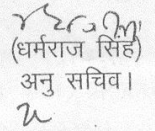 (धर्मराज सिंह)
अनु सचिव।